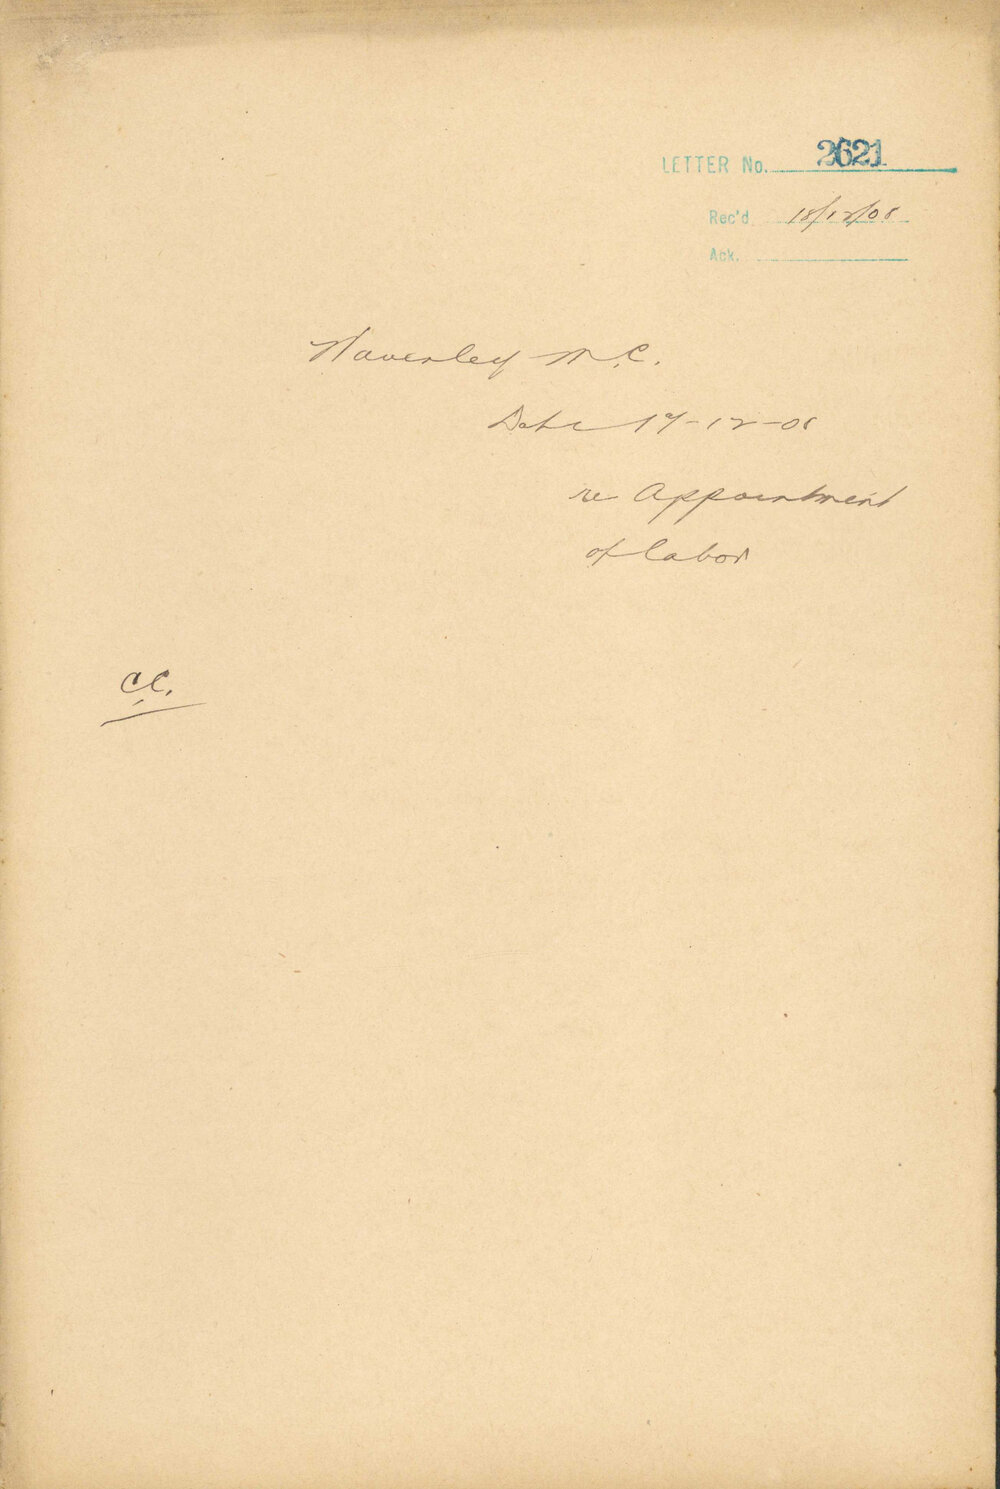 LETTER No. 2621
Rec'd 18/12/08
Ack.
Waverley M.C.
Date 17-12-08
re Appointment
of labor
C.C.